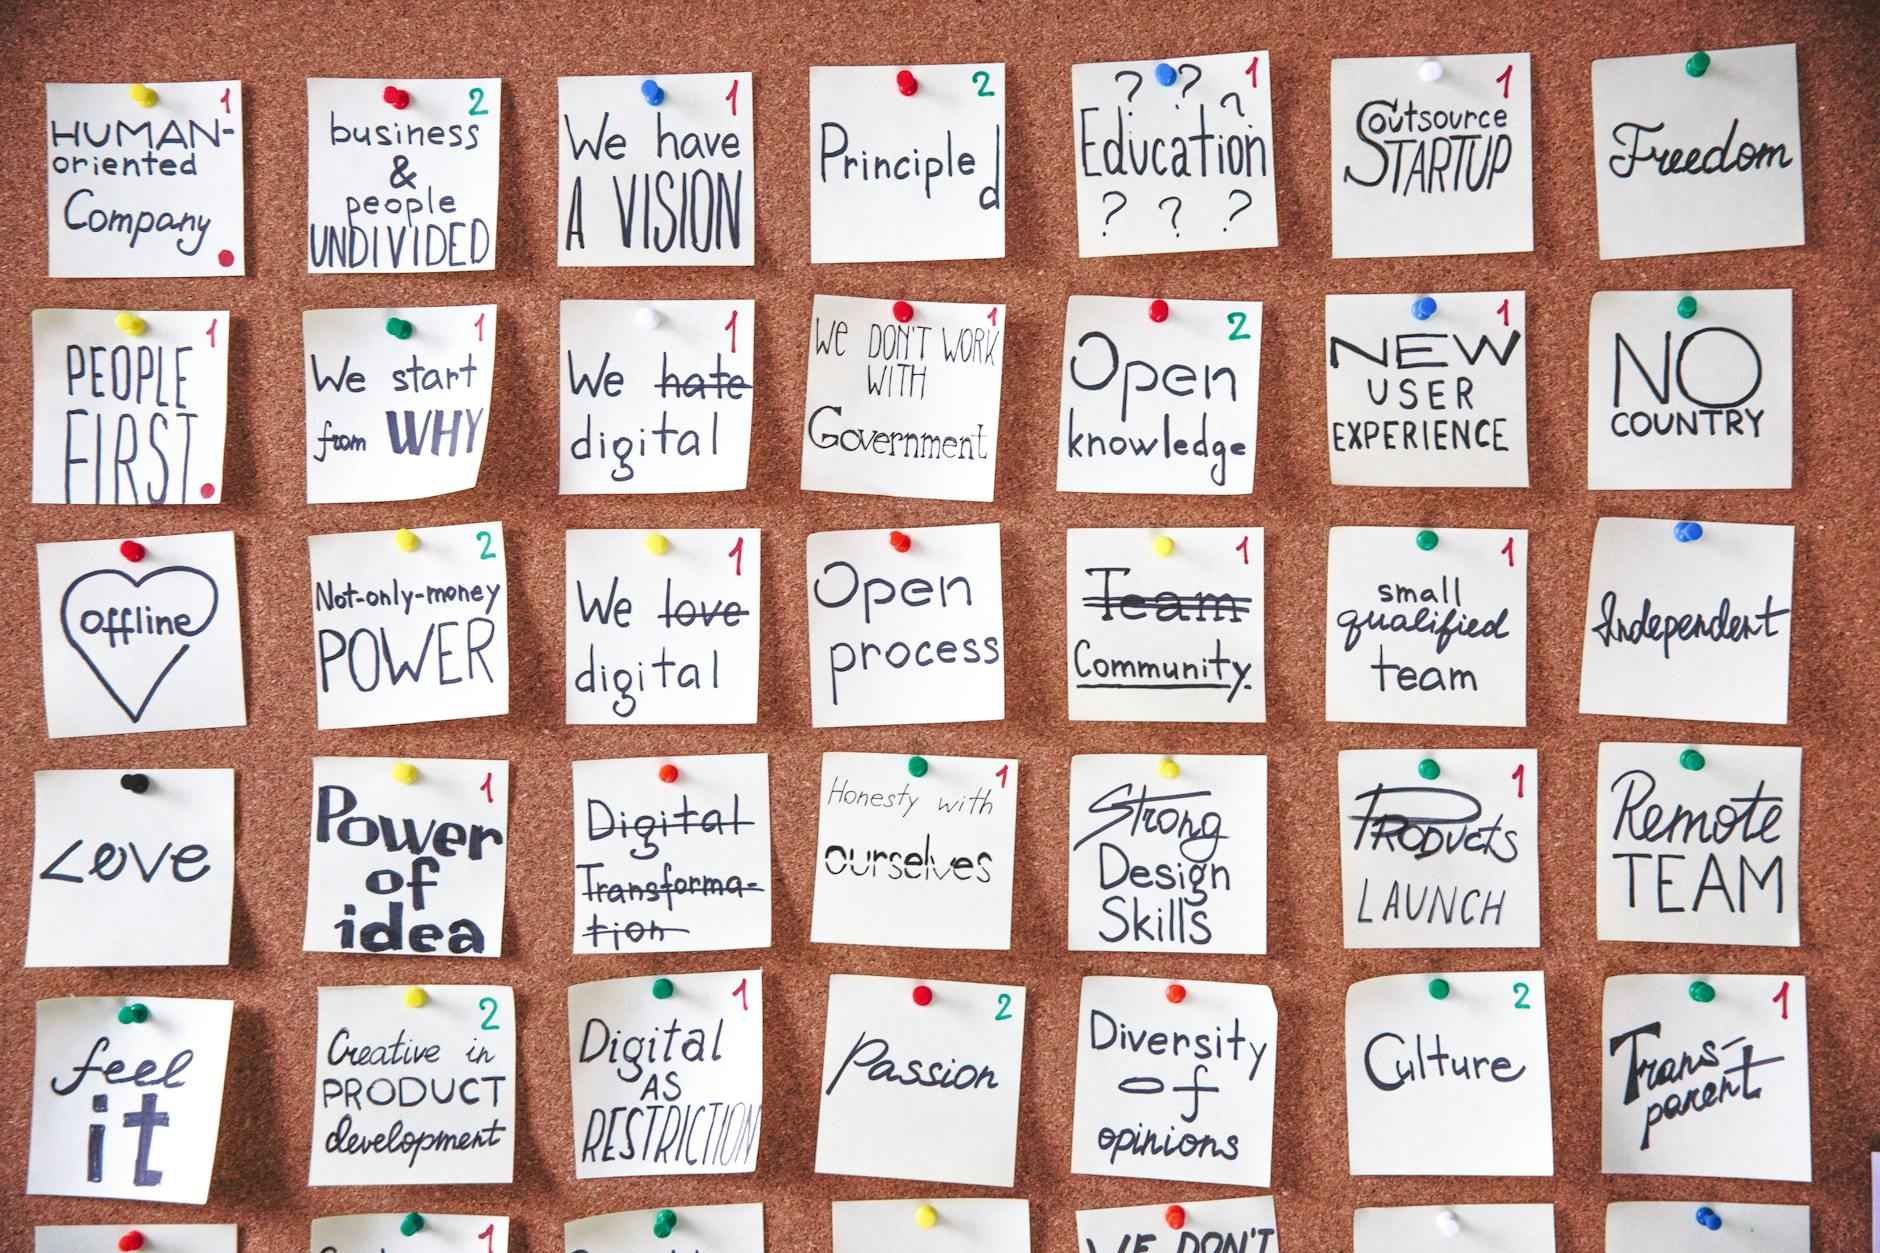 1
HUMAN-
oriented
Company
2
business
&
people
UNDIVIDED
1
We have
A VISION
2
Principled
1
? ? ?
Education
? ? ?
1
Outsource
STARTUP
Freedom
1
PEOPLE
FIRST
1
We start
from WHY
1
We hate
digital
1
WE DON'T WORK
WITH
Government
2
Open
knowledge
1
NEW
USER
EXPERIENCE
NO
COUNTRY
offline
2
Not-only-money
POWER
1
We love
digital
Open
process
1
Team
Community.
1
small
qualified
team
Independent
Love
1
Power
of
idea
Digital
Transforma-
tion
1
Honesty with
ourselves
Strong
Design
Skills
1
PRODUcts
LAUNCH
Remote
TEAM
feel
it
2
Creative in
PRODUCT
development
1
Digital
AS
RESTRICTION
2
Passion
Diversity
of
opinions
2
Culture
1
Trans-
parent
1
WE DON'T